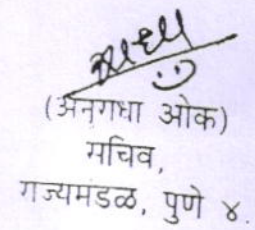 (अनगधा ओक)
सचिव,
राज्यमंडळ, पुणे ४.